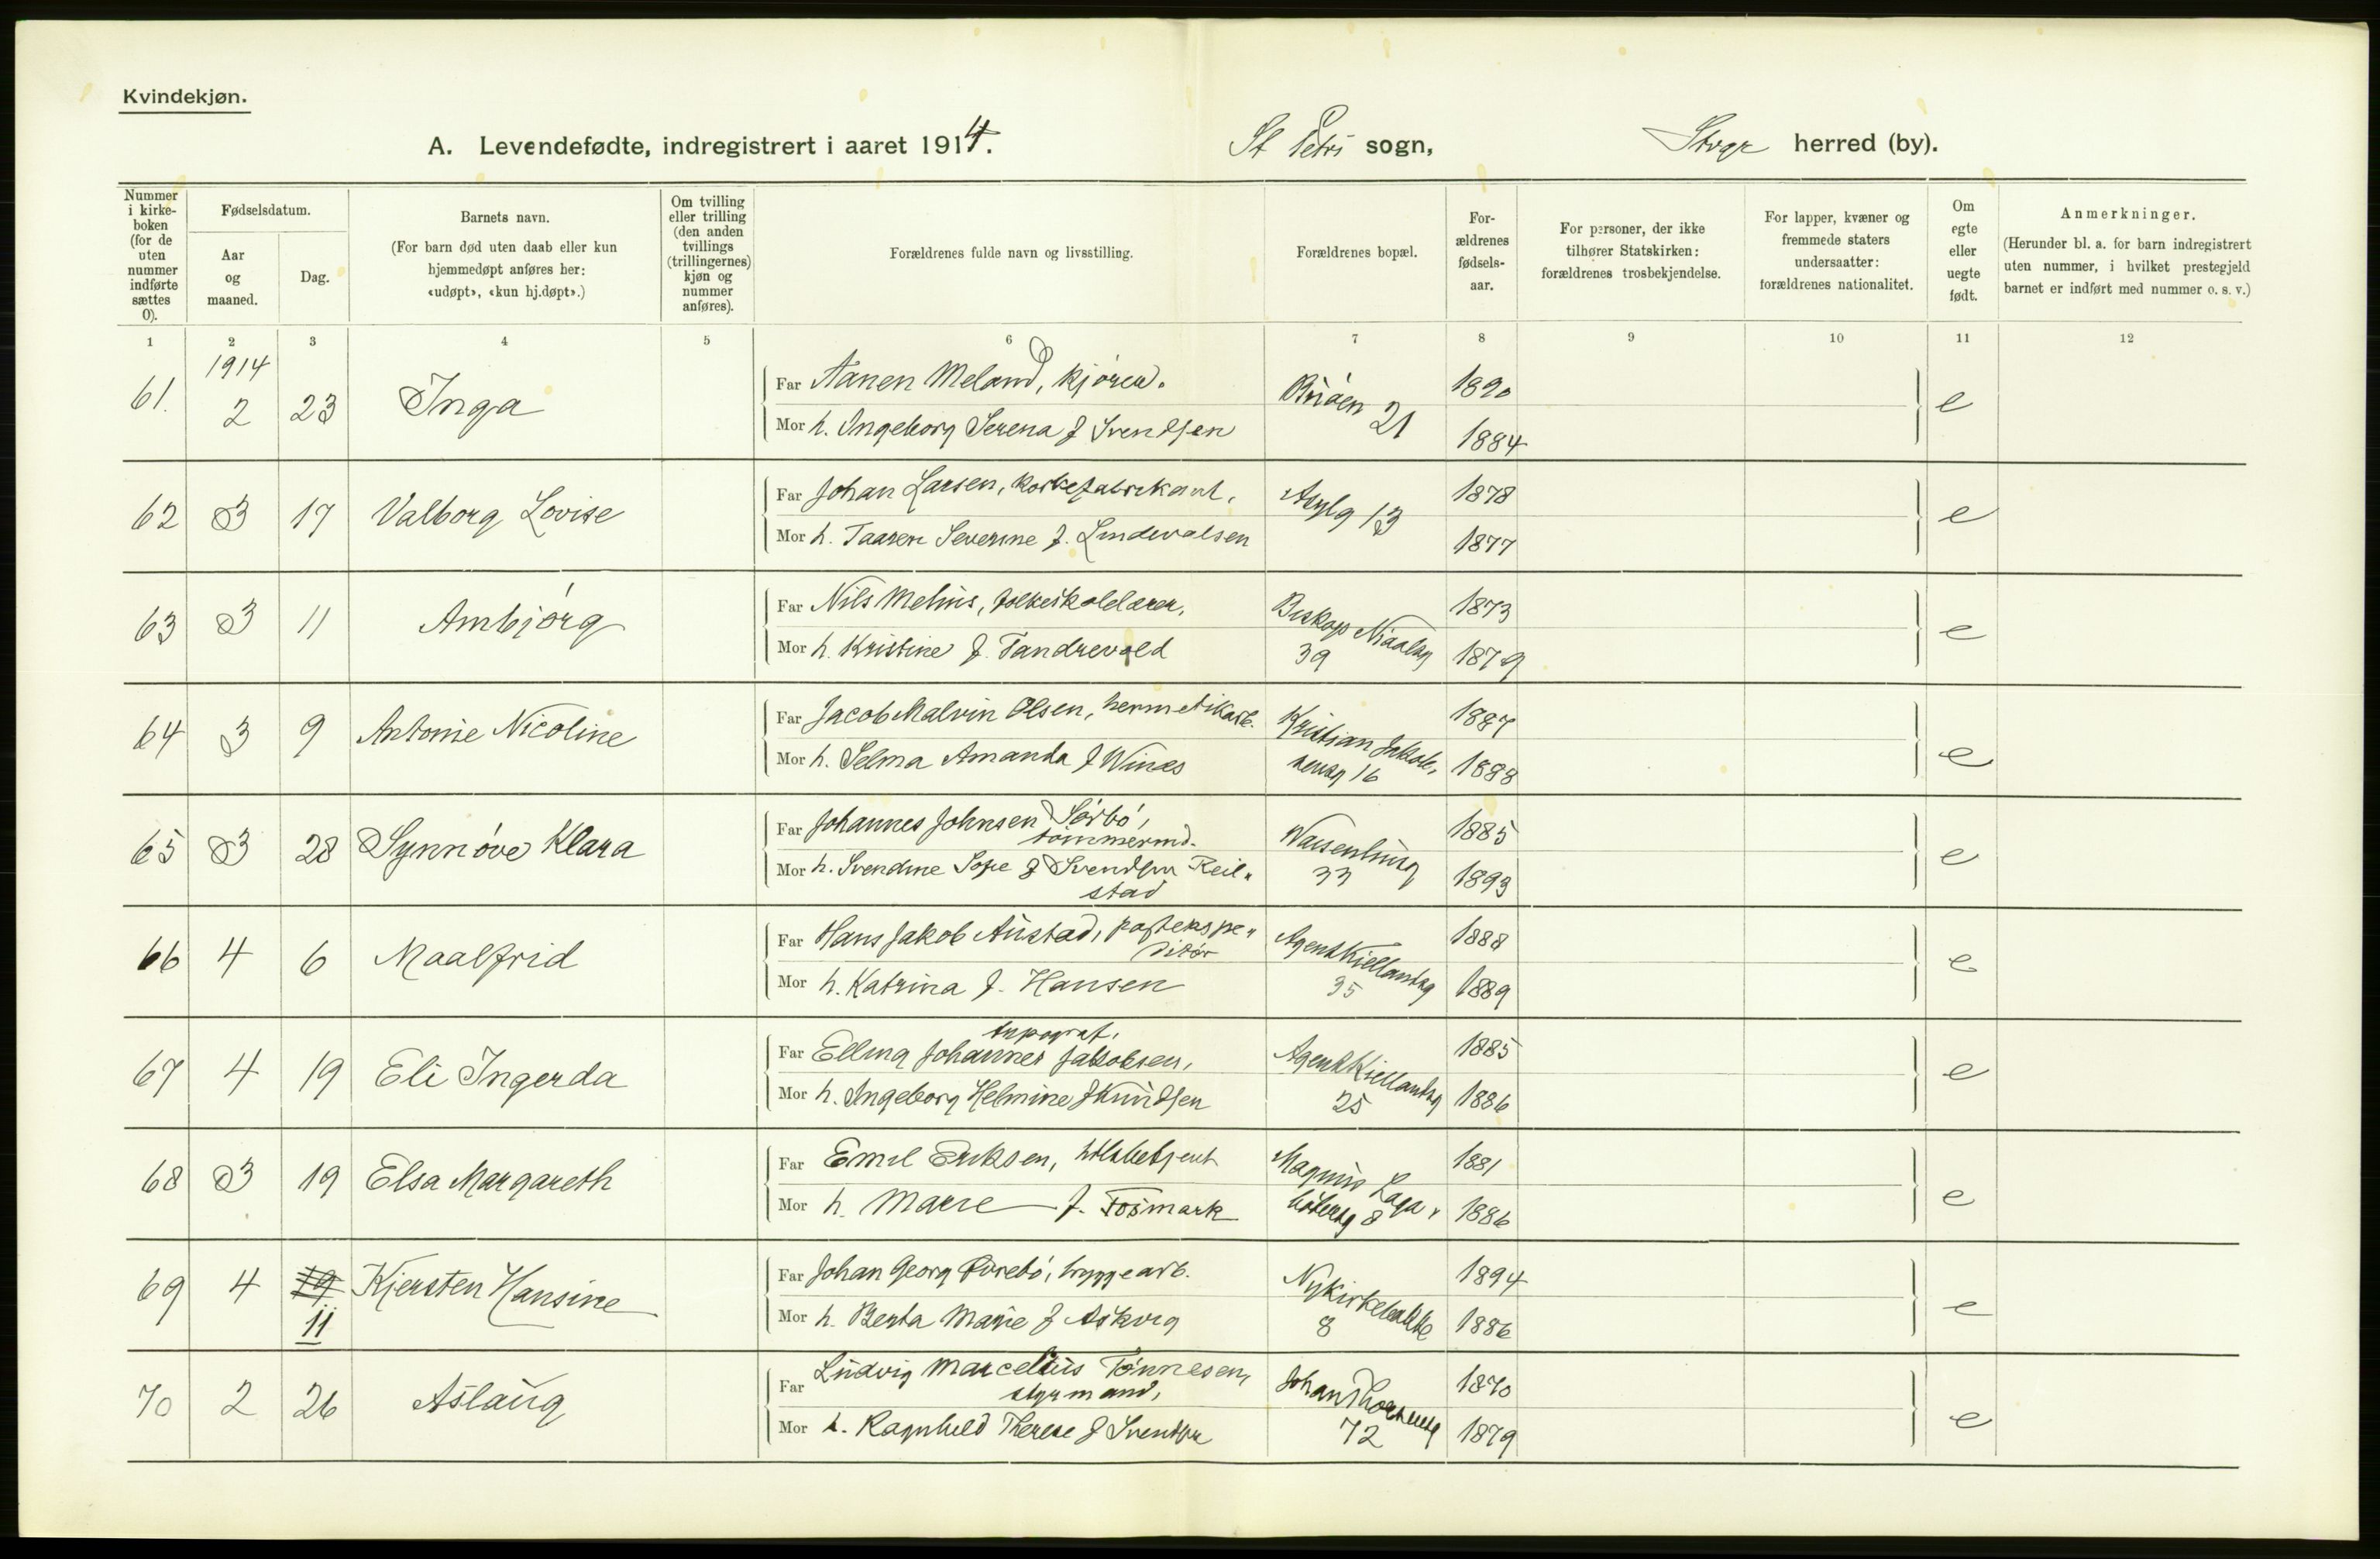 Kvindekjøn.
A. Levendefødte, indregistrert i aaret 1914. St Petri sogn, Stvgr herred (by).
Nummer i kirke-boken (for de uten nummer indførte sættes 0).
Fødselsdatum.
Aar og maaned.
Dag.
Barnets navn.
(For barn død uten daab eller kun hjemmedøpt anføres her: «udøpt», «kun hj.døpt».)
Om tvilling eller trilling (den anden tvillings (trillingernes) kjøn og nummer anføres).
Forældrenes fulde navn og livsstilling.
Forældrenes bopæl.
For-ældrenes fødsels-aar.
For personer, der ikke tilhører Statskirken: forældrenes trosbekjendelse.
For lapper, kvæner og fremmede staters undersaatter: forældrenes nationalitet.
Om egte eller uegte født.
Anmerkninger.
(Herunder bl. a. for barn indregistrert uten nummer, i hvilket prestegjeld barnet er indført med nummer o. s. v.)
1 2 3 4 5 6 7 8 9 10 11 12
1914
61. 2 23 Inga
Far Aanen Meland, kjörer. 1890
Mor h. Ingeborg Serena f Svendsen 21 1884 e
62 3 17 Valborg Lovise
Far Johan Larsen, korkefabrikant. Asylg 13 1878
Mor h. Taaren Severine f. Lindevalsen 1877 e
63 3 11 Ambjörg
Far Nils Melhus, folkeskolelærer. Biskop Nialsg 39 1873
Mor h. Kristine f. Tandrevold 1879 e
64 3 9 Antonie Nicoline
Far Jacob Malvin Olsen, hermetikarb. Kristian 16 1887
Mor h. Selma Amanda f Winæs 1888 e
65 3 28 Synnöve Klara
Far Johannes Johnsen Sörbö, tömmermd. Waisenhusg 33 1885
Mor h. Svendine Sofie f Svendsen Reil-stad 1893 e
66 4 6 Maalfrid
Far Hans Jakob Austad, postekspe-ditör Agent Kiellandsg 35 1888
Mor h. Katrina f. Hansen 1889 e
67 4 19 Eli Ingerda
typograf.
Far Elling Johannes Jakobsen, Agent Kiellandsg 25 1885
Mor h. Ingeborg Helmine f Knudsen 1886 e
68 3 19 Elsa Margareth
Far Emil Eriksen, Magnus Laga-bötersg 8 1881
Mor h. Marie f. Fosmark 1886 e
69 4 19 11 Kjersten Hansine
Far Johan Georg Övrebö, bryggearb. Nykirkebakke 8 1894
Mor h. Berta Marie f Askvig 1886 e
70 2 26 Aslaug
Far Ludvig Marcelius Tönnesen, styrmand, Johan Thorsensg 72 1870
Mor h. Ragnhild Therese f Svendsen 1879 e